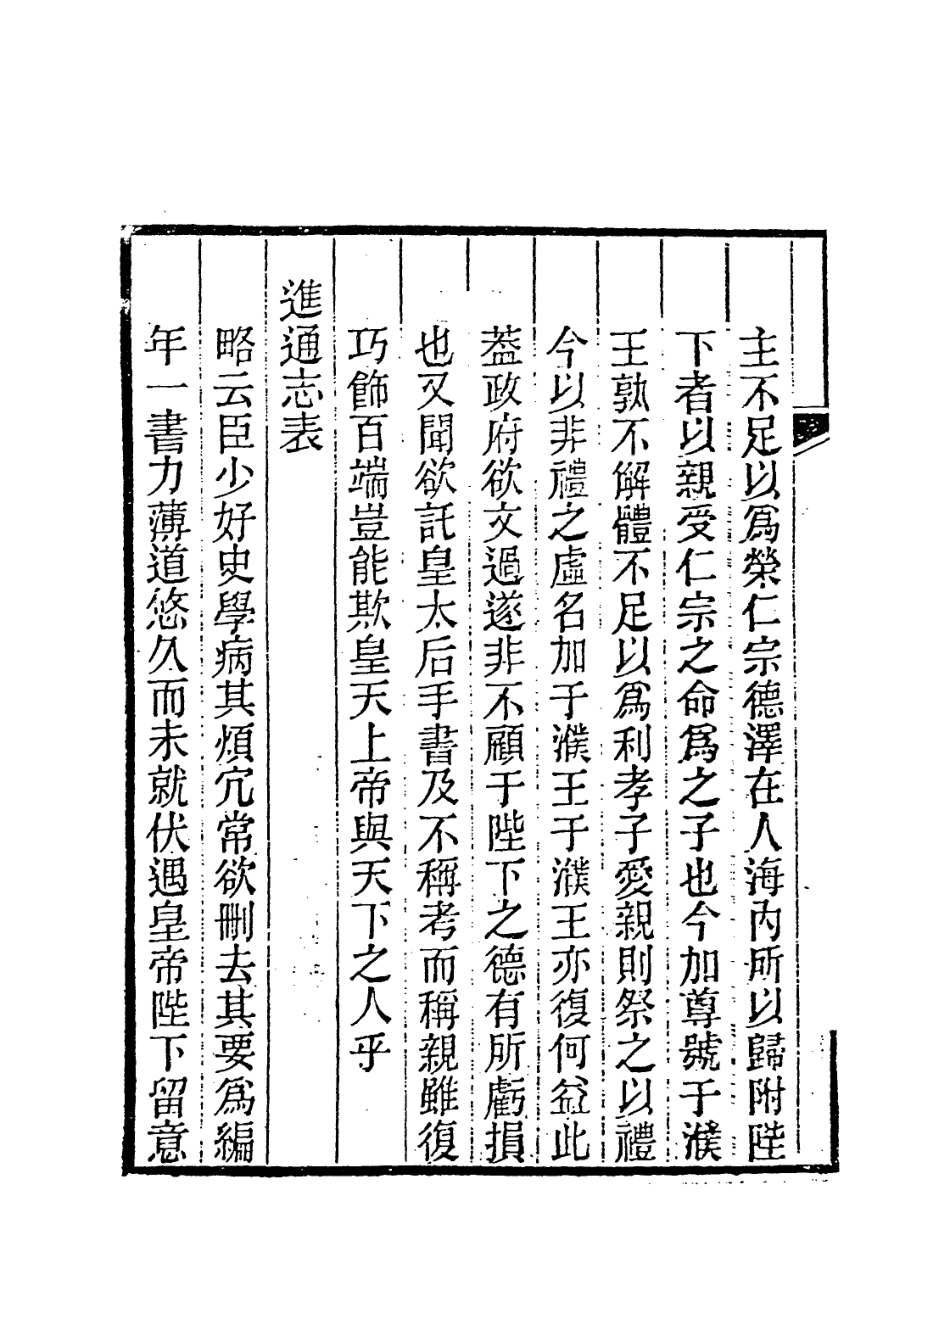 主不足以爲榮仁宗德澤在人海内所以歸附陛
下者以親受仁宗之命爲之子也今加尊號于濮
王孰不解體不足以爲利孝子愛親則祭之以禮
今以非禮之虛名加于濮王于濮王亦復何益此
葢政府欲文過遂非不顧于陛下之德有所虧損
也又聞欲託皇太后手書及不稱考而稱親雖復
巧飾百端豈能欺皇天上帝與天下之人乎
進通志表
略云臣少好史學病其煩宂常欲刪去其要爲編
年一書力薄道悠久而未就伏遇皇帝陛下留意